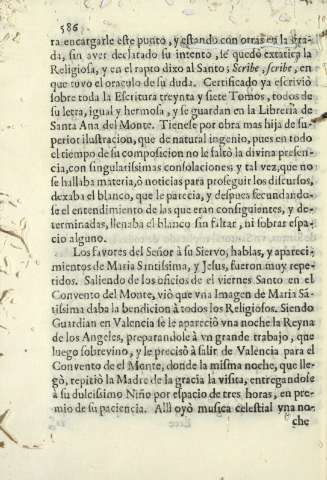 586
ra encargarle este punto, y estando con otras en la gra-
da, sin aver declarado su intento, se quedò extatica la
Religiosa, y en el rapto dixo al Santo; Scribe, scribe, en
que tuvo el oraculo de su duda. Certificado ya escriviò
sobre toda la Escritura treynta y siete Tomos, todos de
su letra, igual y hermosa, y se guardan en la Libreria de
Santa Ana del Monte. Tienese por obra mas hija de su-
perior ilustracion, que de natural ingenio, pues en todo
el tiempo de su composicion no le faltò la divina presen-
cia, con singularissimas consolaciones; y tal vez, que no
se hallaba materia, ò noticias para proseguir los discursos,
dexaba el blanco, que le parecia, y despues secundando-
se el entendimiento de las que eran consiguientes, y de-
terminadas, llenaba el blanco sin faltar, ni sobrar espa-
cio alguno.
Los favores del Señor à su Siervo, hablas, y apareci-
mientos de Maria Santissima, y Jesus, fueron muy repe-
tidos. Saliendo de los oficios de el viernes Santo en el
Convento del Monte, viò que vna Imagen de Maria Sã-
tissima daba la bendicion à todos los Religiosos. Siendo
Guardian en Valencia se le apareciò vna noche la Reyna
de los Angeles, preparandole à vn grande trabajo, que
luego sobrevino, y le precisò à salir de Valencia para el
Convento de el Monte, donde la misma noche, que lle-
gò, repitiò la Madre de la gracia la visita, entregandose
à su dulcissimo Niño por espacio de tres horas, en pre-
mio de su paciencia. Alli oyò musica celestial vna no-
che